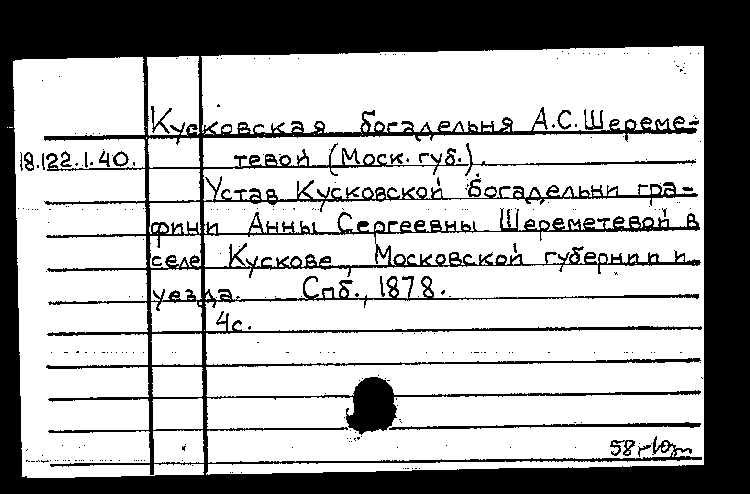 Кусковская богадельня А.С.Шереме-
18.122.1.40. тевой (Моск. губ.).
Устав Кусковской богадельни гра-
фини Анны Сергеевны Шереметевой в
селе Кускове, Московской губернии и
уезда. Спб., 1878.
4с.
58